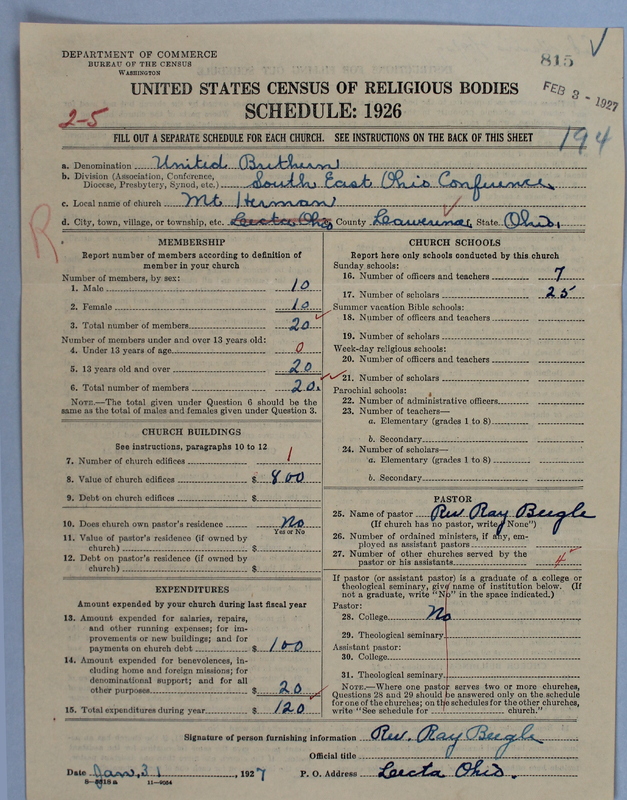 DEPARTMENT OF COMMERCE
BUREAU OF THE CENSUS
WASHINGTON
815
FEB 3 - 1927
UNITED STATES CENSUS OF RELIGIOUS BODIES
SCHEDULE: 1926
2-5
FILL OUT A SEPARATE SCHEDULE FOR EACH CHURCH. SEE INSTRUCTIONS ON THE BACK OF THIS SHEET
194
a. Denomination United Brethern
b. Division (Association, Conference, Diocese, Presbytery, Synod, etc.) South East Ohio Conference
c. Local name of church Mt Herman
d. City, town, village, or township, etc. Leecta Ohio County Lawernce, State Ohio.
R
MEMBERSHIP
Report number of members according to definition of
member in your church
Number of members, by sex:
1. Male 10
2. Female 10
3. Total number of members 20
Number of members under and over 13 years old:
4. Under 13 years of age 0
5. 13 years old and over 20
6. Total number of members 20.
NOTE.—The total given under Question 6 should be the
same as the total of males and females given under Question 3.
CHURCH BUILDINGS
See instructions, paragraphs 10 to 12
7. Number of church edifices 1
8. Value of church edifices $ 800
9. Debt on church edifices $
10. Does church own pastor's residence No
Yes or No
11. Value of pastor's residence (if owned by
church) $
12. Debt on pastor's residence (if owned by
church) $
EXPENDITURES
Amount expended by your church during last fiscal year
13. Amount expended for salaries, repairs,
and other running expenses; for im-
provements or new buildings; and for
payments on church debt $ 100
14. Amount expended for benevolences, in-
cluding home and foreign missions; for
denominational support; and for all
other purposes $ 20
15. Total expenditures during year $ 120
CHURCH SCHOOLS
Report here only schools conducted by this church
Sunday schools:
16. Number of officers and teachers 7
17. Number of scholars 25
Summer vacation Bible schools:
18. Number of officers and teachers
19. Number of scholars
Week-day religious schools:
20. Number of officers and teachers
21. Number of scholars
Parochial schools:
22. Number of administrative officers
23. Number of teachers—
a. Elementary (grades 1 to 8)
b. Secondary
24. Number of scholars—
a. Elementary (grades 1 to 8)
b. Secondary
PASTOR
25. Name of pastor Rev Ray Beegle
(If church has no pastor, write "None")
26. Number of ordained ministers, if any, em-
ployed as assistant pastors
27. Number of other churches served by the
pastor or his assistants 4
If pastor (or assistant pastor) is a graduate of a college or
theological seminary, give name of institution below. (If
not a graduate, write "No" in the space indicated.)
Pastor:
28. College No
29. Theological seminary
Assistant pastor:
30. College
31. Theological seminary
NOTE.—Where one pastor serves two or more churches,
Questions 28 and 29 should be answered only on the schedule
for one of the churches; on the schedules for the other churches,
write "See schedule for church."
Signature of person furnishing information Rev. Ray Beegle
Official title
Date Jan, 31, 1927 P. O. Address Leecta Ohio.
8-5518 a 11-9054